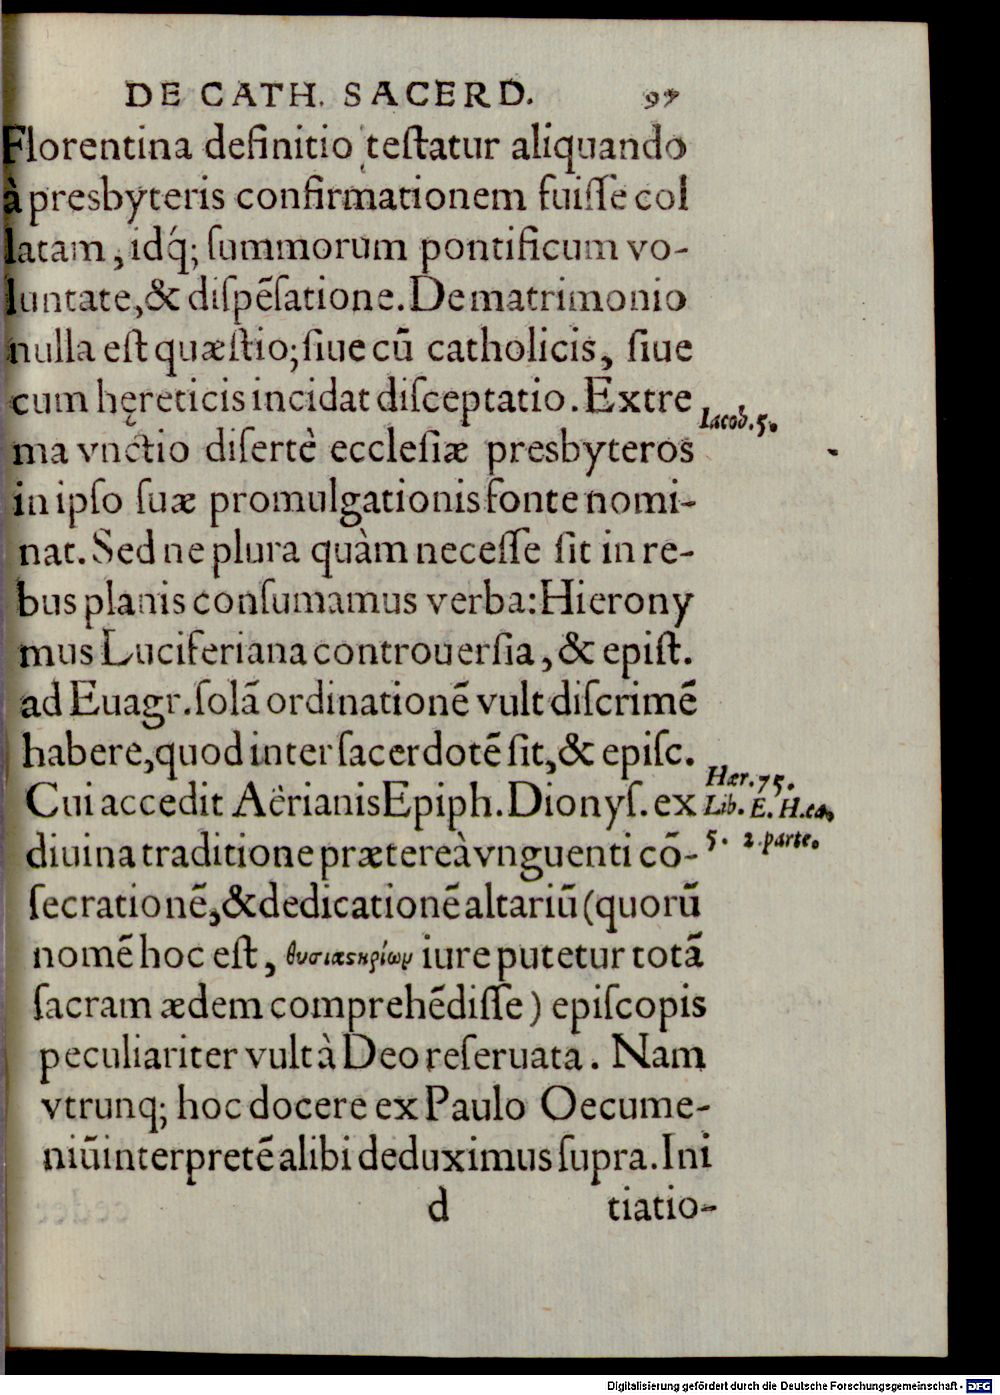 DE CATH. SACERD. 97
Florentina definitio teſtatur aliquando
à presbyteris confirmationem fuiſſe col
latam, idq́; ſummorum pontificum vo-
luntate, & diſpēſatione. De matrimonio
nulla eſt quæſtio; ſiue cū catholicis, ſiue
cum hęreticis incidat diſceptatio. Extre
Iacob. 5.
ma vnctio diſertè eccleſiæ presbyteros
in ipſo ſuæ promulgationis fonte nomi-
nat. Sed ne plura quàm neceſſe ſit in re-
bus planis conſumamus verba: Hierony
mus Luciferiana controuerſia, & epiſt.
ad Euagr. ſolā ordinationē vult diſcrimē
habere, quod inter ſacerdotē ſit, & epiſc.
Hær. 75.
Cui accedit Aërianis Epiph. Dionyſ. ex
Lib. E. H. ca.
5. 2. parte.
diuina traditione prætereà vnguenti cō-
ſecrationē, & dedicationē altariū (quorū
nomē hoc est, θυσιαϛηρίωμ iure putetur totā
ſacram ædem comprehēdiſſe) epiſcopis
peculiariter vult à Deo reſeruata. Nam
vtrunq; hoc docere ex Paulo Oecume-
niū interpretē alibi deduximus ſupra. Ini
d tiatio-
Digitalisierung gefördert durch die Deutsche Forschungsgemeinschaft - DFG